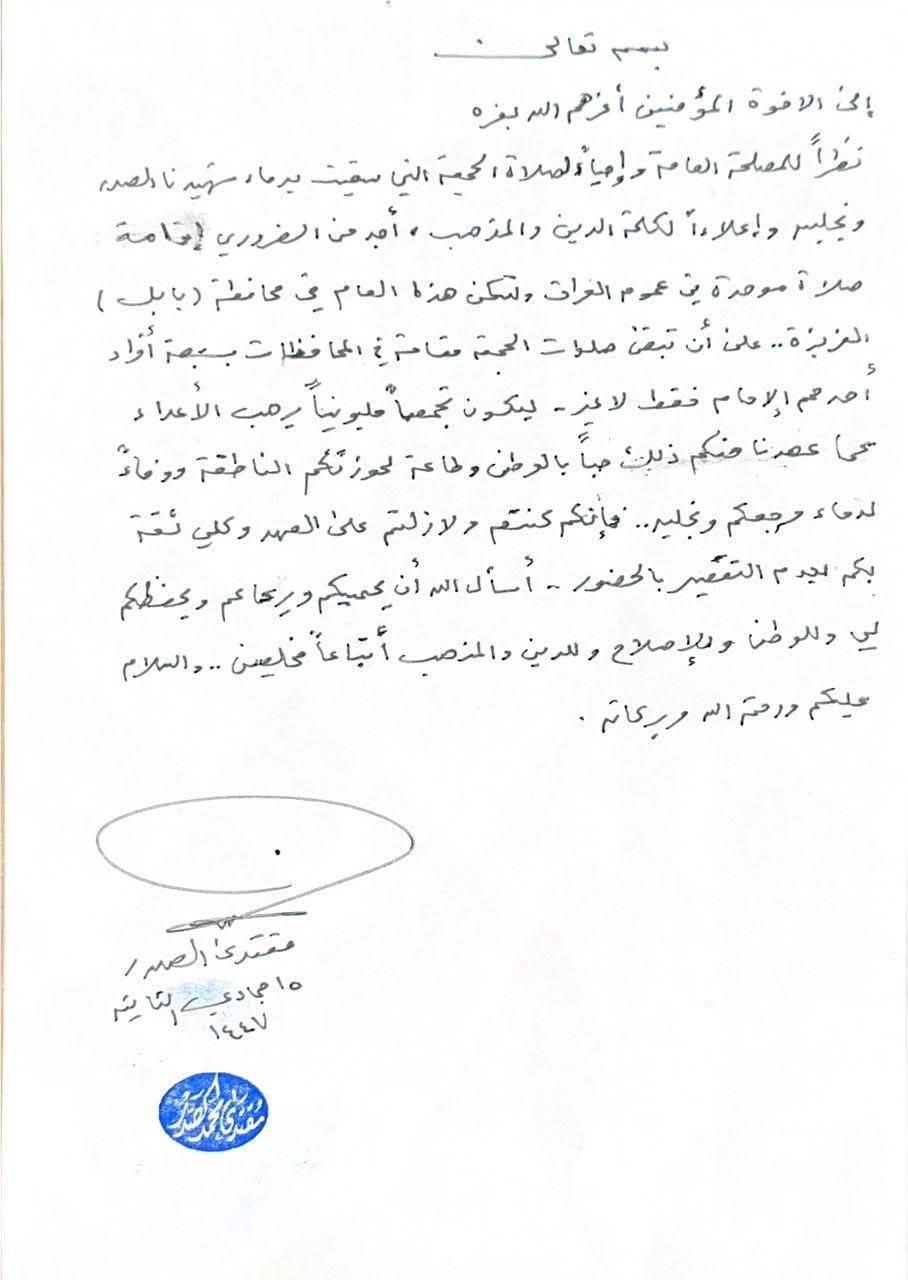 بسمه تعالى
إلى الاخوة المؤمنين أعزهم الله بعزه
نظراً للمصلحة العامة وإحياءً لصلاة الجمعة التي سقيت بدماء شهيدنا الصدر
ونجليه وإعلاءاً لكلمة الدين والمذهب، أجد من الضروري إقامة
صلاة موحدة في عموم الفرات ولتكن هذا العام في محافظة (بابل)
العزيزة.. على أن تبقى صلوات الجمعة مقامة في المحافظات بسبعة أفراد
أحدهم الإمام فقط لا غير - ليكون تجمعاً مليونياً يرهب الأعداء
كما عهدنا منكم ذلك حباً بالوطن وطاعة لحوزتكم الناطقة ووفاءً
لدماء مرجعكم ونجليه.. فإنكم كنتم ولا زلتم على العهد وكلي ثقة
بكم بعدم التقصير بالحضور - أسأل الله أن يحميكم ويرعاكم ويحفظكم
لي وللوطن وللإصلاح وللدين والمذهب أتباعاً مخلصين .. والسلام
عليكم ورحمة الله وبركاته .
مقتدى الصدر
١٥ جمادي الثانية
١٤٤٧
مقتدى محمد الصدر